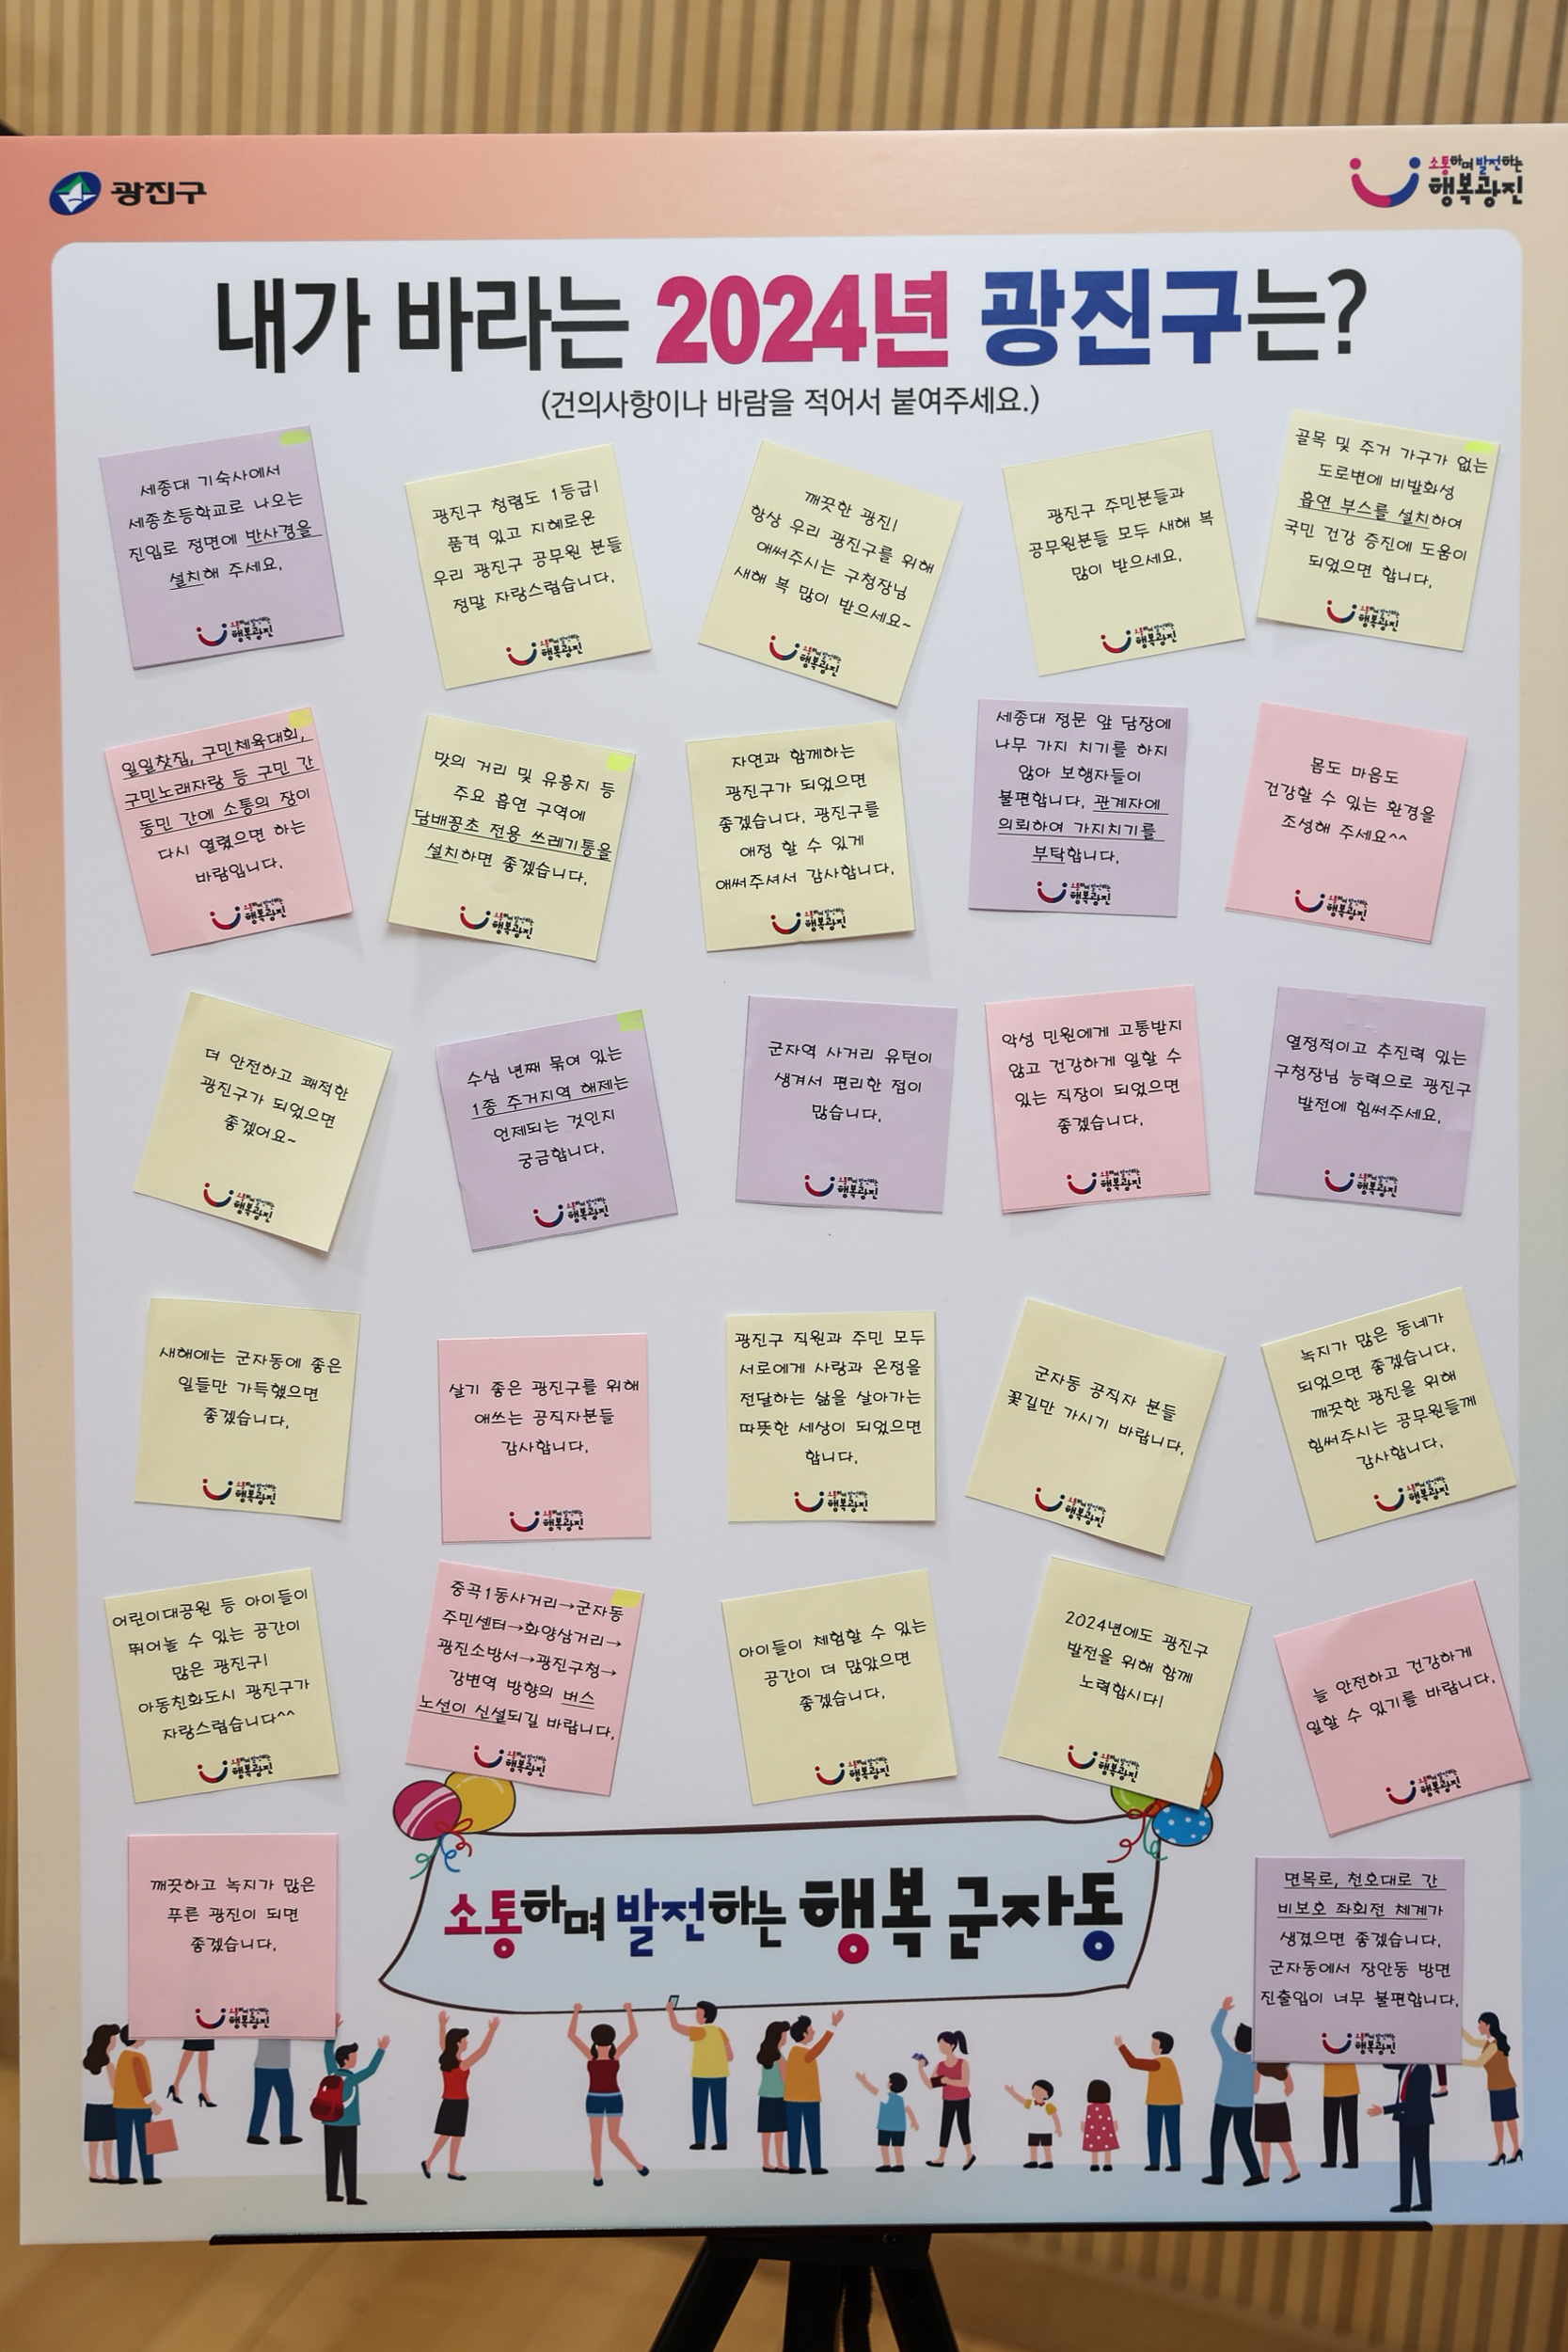 광진구
소통하며 발전하는
행복광진
내가 바라는 2024년 광진구는?
(건의사항이나 바람을 적어서 붙여주세요.)
세종대 기숙사에서
세종초등학교로 나오는
진입로 정면에 반사경을
설치해 주세요.
소통하며 발전하는
행복광진
광진구 청렴도 1등급!
품격 있고 지혜로운
우리 광진구 공무원 분들
정말 자랑스럽습니다.
소통하며 발전하는
행복광진
깨끗한 광진!
항상 우리 광진구를 위해
애써주시는 구청장님
새해 복 많이 받으세요~
소통하며 발전하는
행복광진
광진구 주민분들과
공무원분들 모두 새해 복
많이 받으세요.
소통하며 발전하는
행복광진
골목 및 주거 가구가 없는
도로변에 비발화성
흡연 부스를 설치하여
국민 건강 증진에 도움이
되었으면 합니다.
소통하며 발전하는
행복광진
일일찻집, 구민체육대회,
구민노래자랑 등 구민 간
동민 간에 소통의 장이
다시 열렸으면 하는
바람입니다.
소통하며 발전하는
행복광진
맛의 거리 및 유흥지 등
주요 흡연 구역에
담배꽁초 전용 쓰레기통을
설치하면 좋겠습니다.
소통하며 발전하는
행복광진
자연과 함께하는
광진구가 되었으면
좋겠습니다. 광진구를
애정 할 수 있게
애써주셔서 감사합니다.
소통하며 발전하는
행복광진
세종대 정문 앞 담장에
나무 가지 치기를 하지
않아 보행자들이
불편합니다. 관계자에
의뢰하여 가지치기를
부탁합니다.
소통하며 발전하는
행복광진
몸도 마음도
건강할 수 있는 환경을
조성해 주세요^^
소통하며 발전하는
행복광진
더 안전하고 쾌적한
광진구가 되었으면
좋겠어요~
소통하며 발전하는
행복광진
수십 년째 묶여 있는
1종 주거지역 해제는
언제되는 것인지
궁금합니다.
소통하며 발전하는
행복광진
군자역 사거리 유턴이
생겨서 편리한 점이
많습니다.
소통하며 발전하는
행복광진
악성 민원에게 고통받지
않고 건강하게 일할 수
있는 직장이 되었으면
좋겠습니다.
소통하며 발전하는
행복광진
열정적이고 추진력 있는
구청장님 능력으로 광진구
발전에 힘써주세요.
소통하며 발전하는
행복광진
새해에는 군자동에 좋은
일들만 가득했으면
좋겠습니다.
소통하며 발전하는
행복광진
살기 좋은 광진구를 위해
애쓰는 공직자분들
감사합니다.
소통하며 발전하는
행복광진
광진구 직원과 주민 모두
서로에게 사랑과 온정을
전달하는 삶을 살아가는
따뜻한 세상이 되었으면
합니다.
소통하며 발전하는
행복광진
군자동 공직자 분들
꽃길만 가시기 바랍니다.
소통하며 발전하는
행복광진
녹지가 많은 동네가
되었으면 좋겠습니다.
깨끗한 광진을 위해
힘써주시는 공무원들께
감사합니다.
소통하며 발전하는
행복광진
어린이대공원 등 아이들이
뛰어놀 수 있는 공간이
많은 광진구!
아동친화도시 광진구가
자랑스럽습니다^^
소통하며 발전하는
행복광진
중곡1동사거리→군자동
주민센터→화양삼거리→
광진소방서→광진구청→
강변역 방향의 버스
노선이 신설되길 바랍니다.
소통하며 발전하는
행복광진
아이들이 체험할 수 있는
공간이 더 많았으면
좋겠습니다.
소통하며 발전하는
행복광진
2024년에도 광진구
발전을 위해 함께
노력합시다!
소통하며 발전하는
행복광진
늘 안전하고 건강하게
일할 수 있기를 바랍니다.
소통하며 발전하는
행복광진
깨끗하고 녹지가 많은
푸른 광진이 되면
좋겠습니다.
소통하며 발전하는
행복광진
소통하며 발전하는 행복 군자동
면목로, 천호대로 간
비보호 좌회전 체계가
생겼으면 좋겠습니다.
군자동에서 장안동 방면
진출입이 너무 불편합니다.
소통하며 발전하는
행복광진